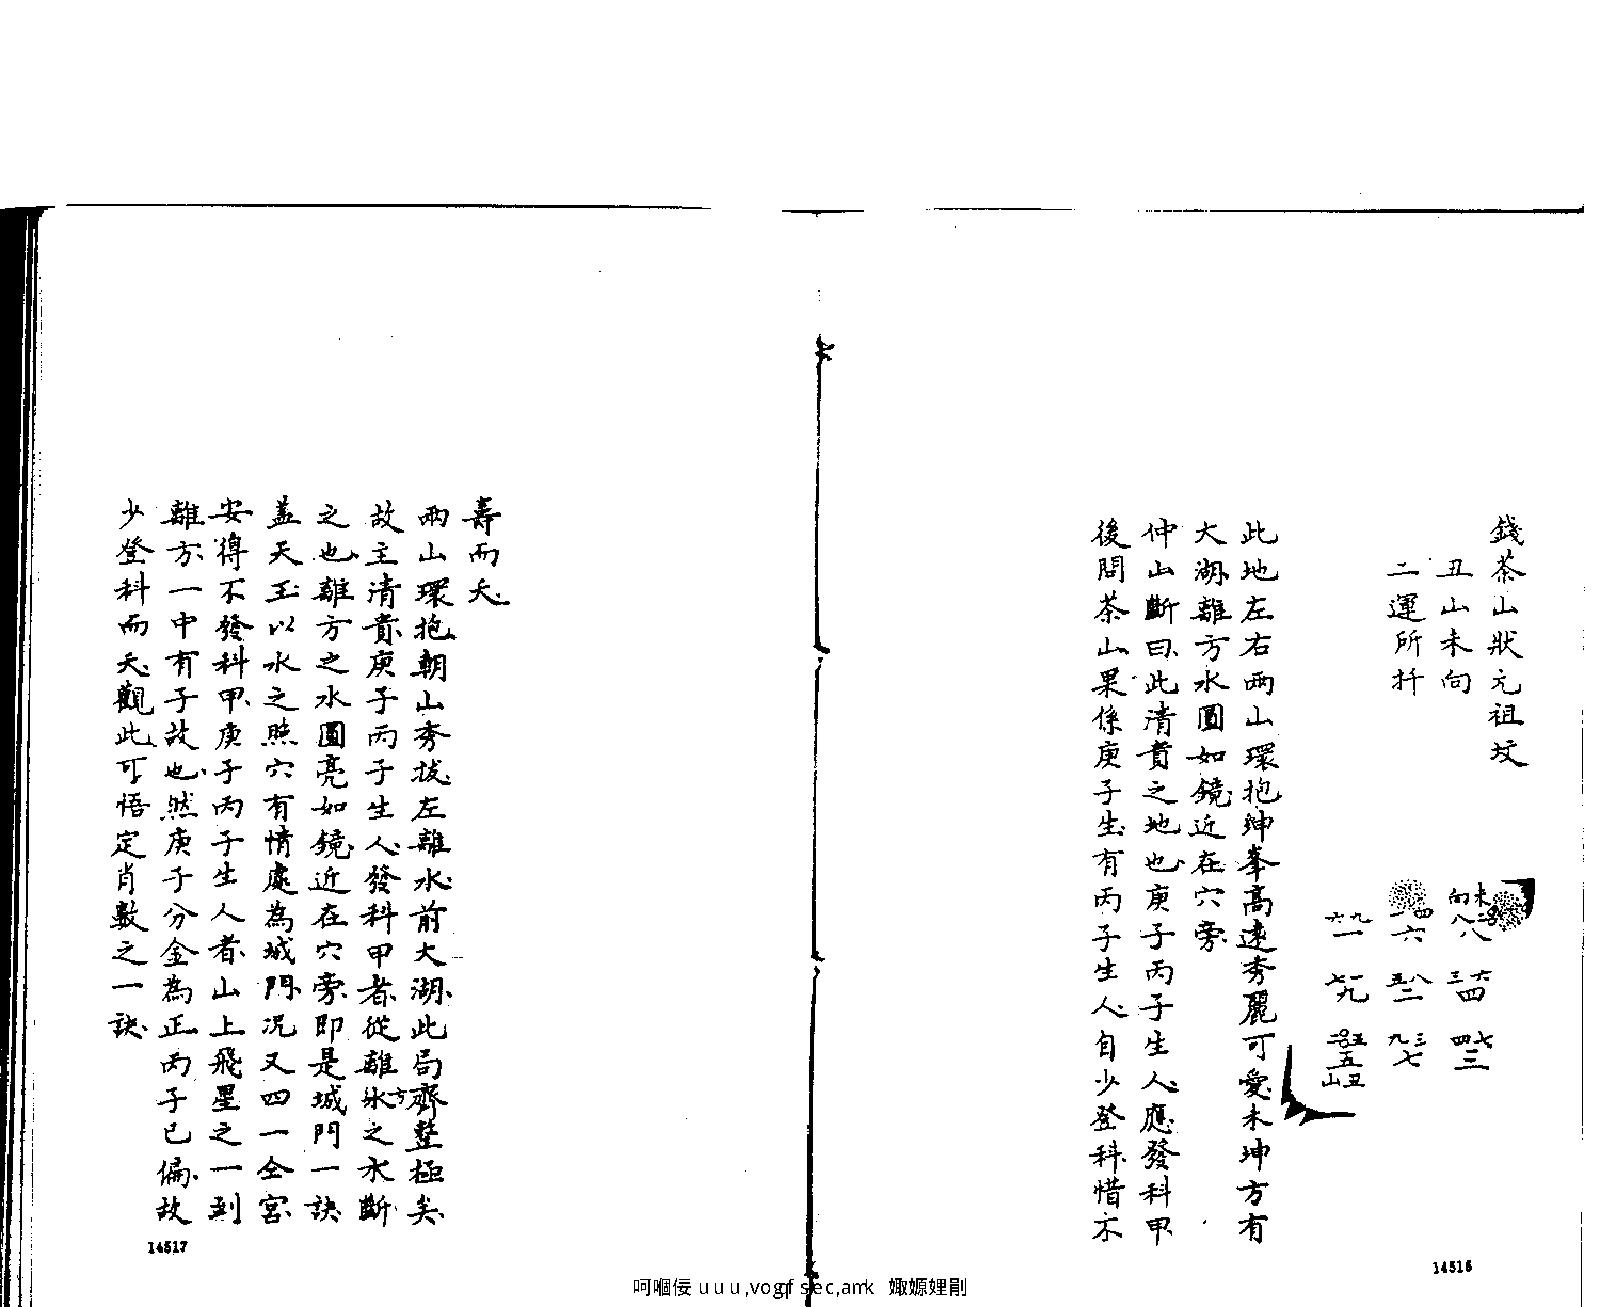 錢茶山狀元祖坟
丑山未向
二運所扦
未向
二 八 八
六 三 四
七 四 三
四 一 六
八 五 二
三 九 七
九 六 一
一 七 九
五
五
丑山
此地左右兩山環抱坤峯高遠秀麗可愛未坤方有
大湖離方水圓如鏡近在穴旁
仲山斷曰此清貴之地也庚子丙子生人應發科甲
後問茶山果係庚子生有丙子生人自少登科惜不
壽而夭
兩山環抱朝山秀拔左離水前大湖此局齊整極矣
故主清貴庚子丙子生人發科甲者從離方之水斷
之也離方之水圓亮如鏡近在穴旁即是城門一訣
盖天玉以水之照穴有情處為城門况又四一仝宮
安得不發科甲庚子丙子生人者山上飛星之一到
離方一中有子故也然庚子分金為正丙子已偏故
少登科而夭觀此可悟定肖數之一訣
14517
14516
呵嗰倭 u u u ,vogf sec,amk 娵嫄娌剛